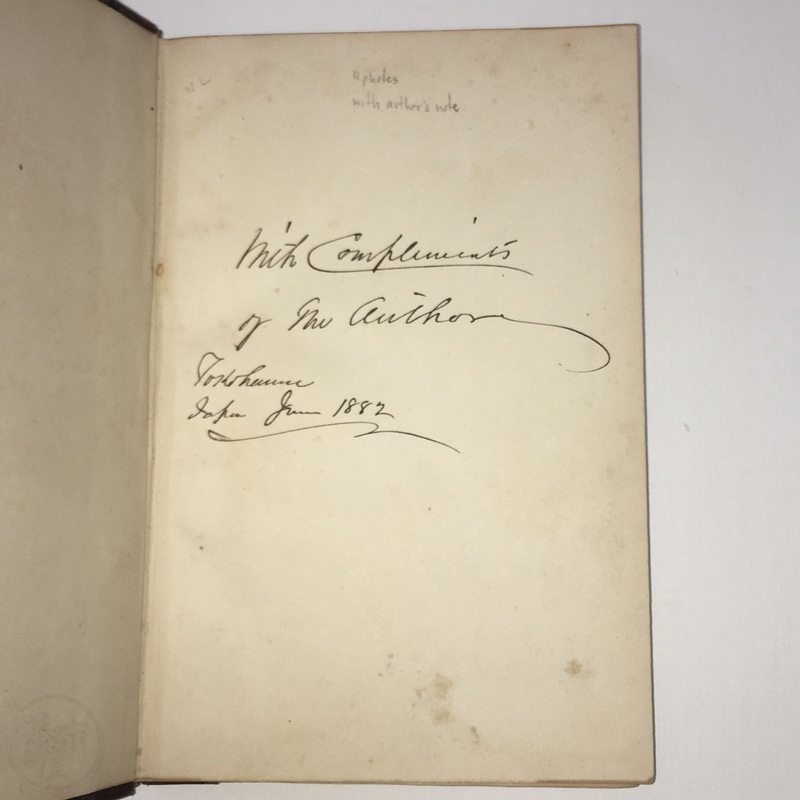 11 photos
with author's note
With Compliments
of The Author
Yokohama
Japan June 1882